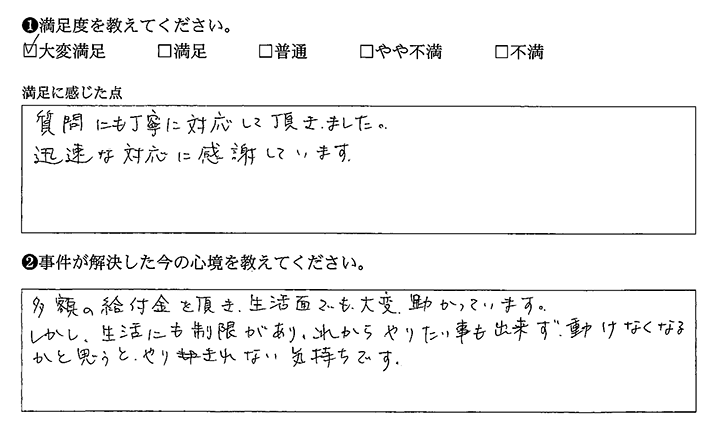 ❶満足度を教えてください。
☑大変満足 □満足 □普通 □やや不満 □不満
満足に感じた点
質問にも丁寧に対応して頂きました。
迅速な対応に感謝しています。
❷事件が解決した今の心境を教えてください。
多額の給付金を頂き、生活面でも、大変、助かっています。
しかし、生活にも制限があり、これからやりたい事も出来ず、動けなくなる
かと思うと、やりきれない気持ちです。